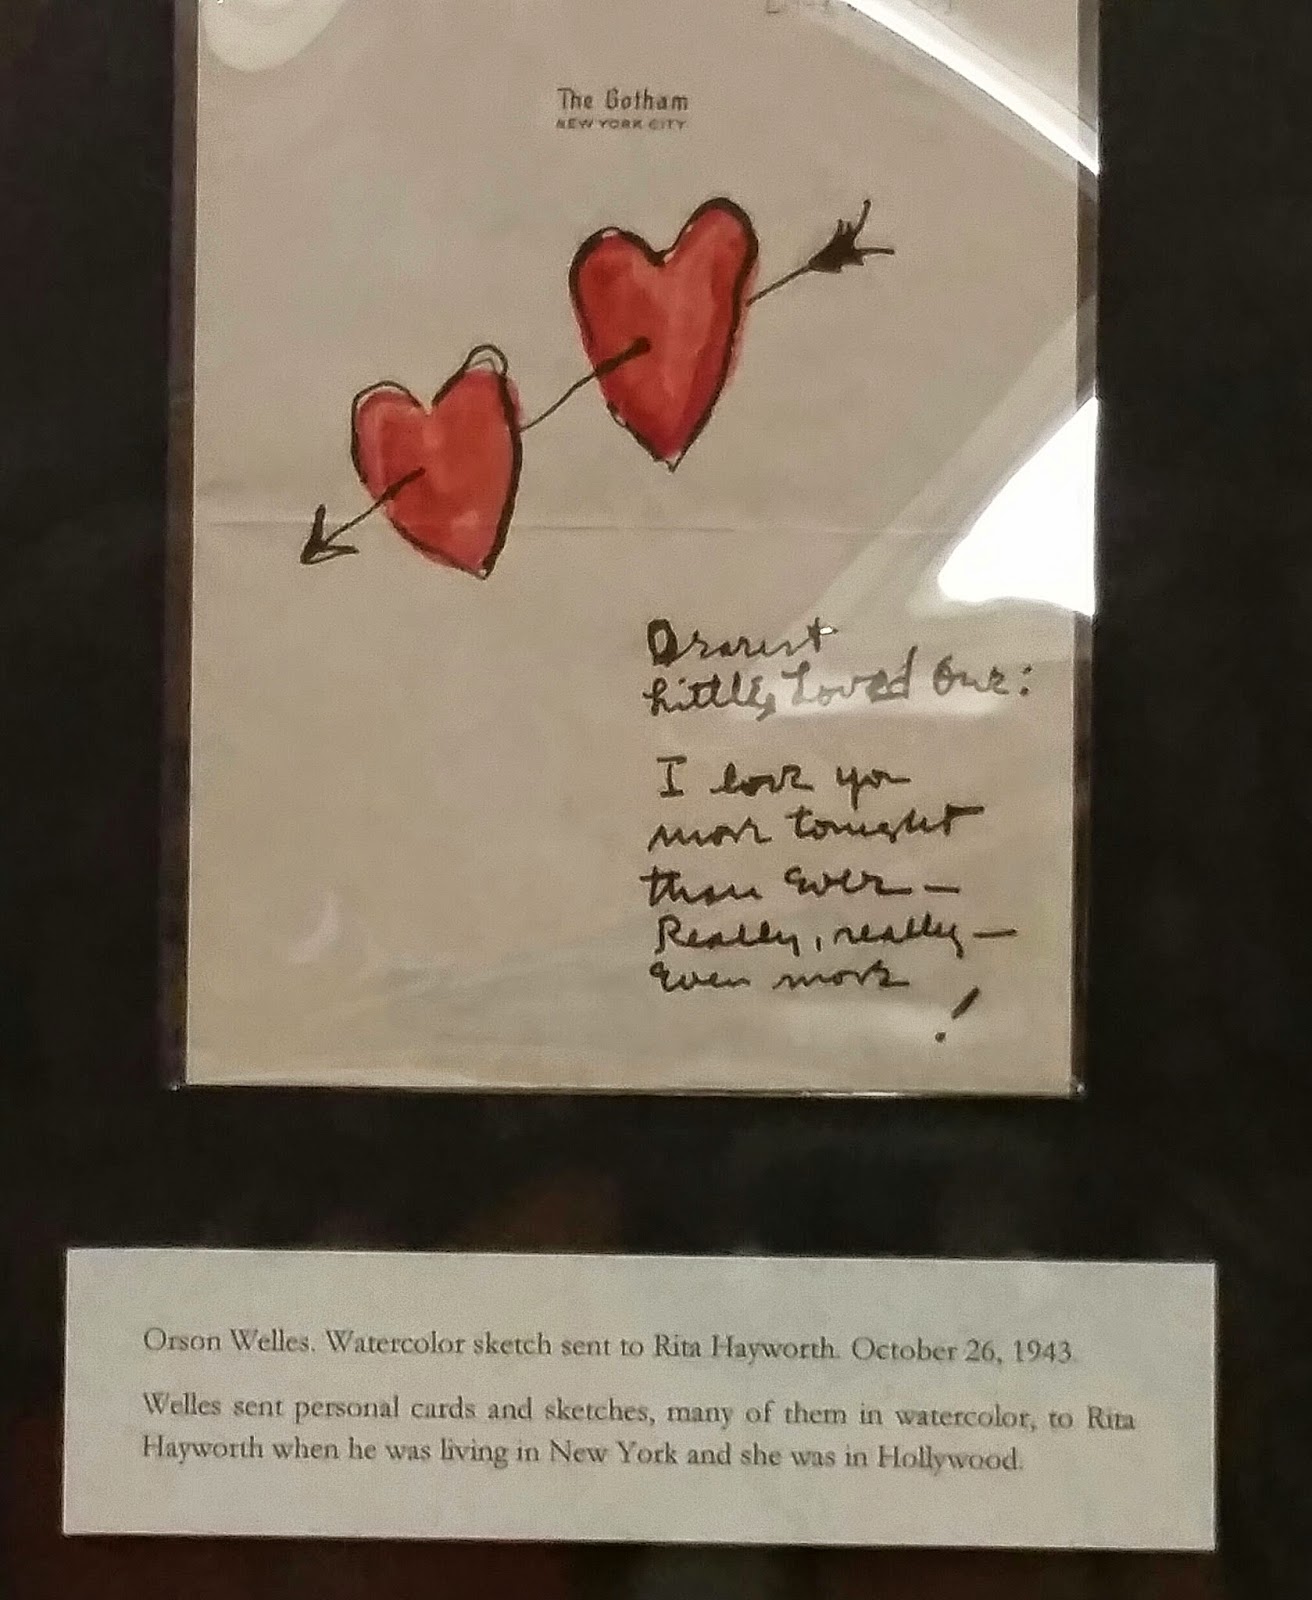 The Gotham
NEW YORK CITY
Dearest
Little, Loved One:
I love you
more tonight
than ever —
Really, really —
Even more
!
Orson Welles. Watercolor sketch sent to Rita Hayworth. October 26, 1943
Welles sent personal cards and sketches, many of them in watercolor, to Rita
Hayworth when he was living in New York and she was in Hollywood.